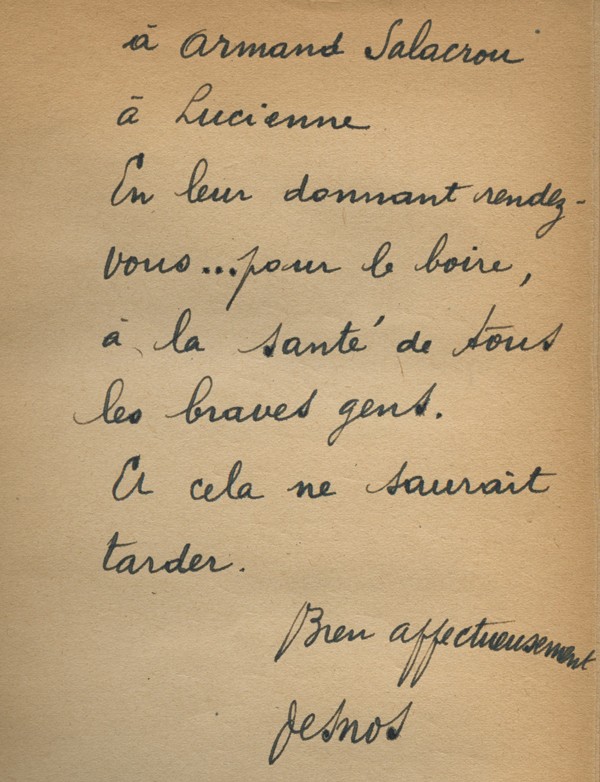 à Armand Salacrou
à Lucienne
En leur donnant rendez-
vous...pour le boire,
à la santé de tous
les braves gens.
Et cela ne saurait
tarder.
Bien affectueusement
Desnos